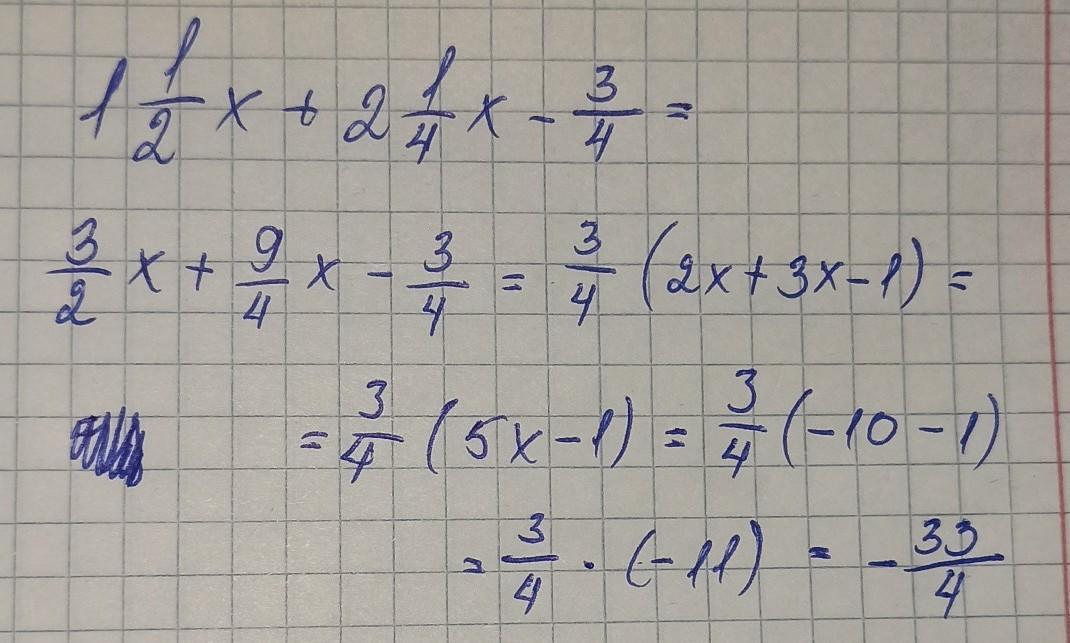 1 1/2 x + 2 1/4 x - 3/4 =
3/2 x + 9/4 x - 3/4 = 3/4 (2x + 3x - 1) =
= 3/4 (5x - 1) = 3/4 (-10 - 1)
= 3/4 · (-11) = - 33/4